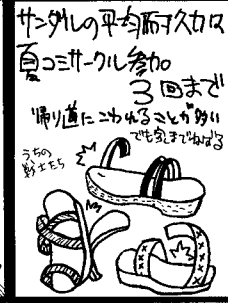 サンダルの平均耐久力は
夏コミサークル参加
3回まで
帰り道にこわれることが多い
でも家までねばる
うちの
戦士たち